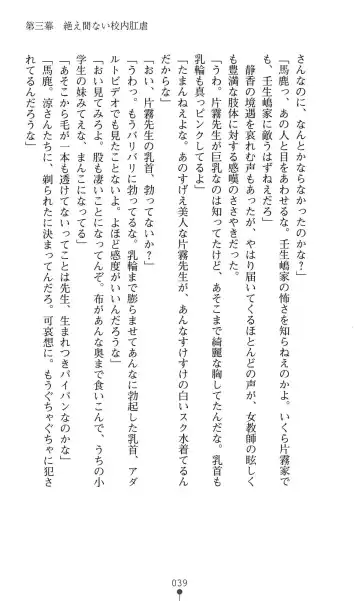 第三幕 絶え間ない校内肛虐
さんなのに、なんとかならなかったのかな?」
「馬鹿、あの人と目をあわせるな。壬生嶋家の怖さを知らねえのかよ。いくら片霧家で
も、壬生嶋家に敵うはずねえだろ」
静香の境遇を哀れむ声もあったが、やはり届いてくるほとんどの声が、女教師の眩しく
も豊満な肢体に対する感嘆のささやきだった。
「うわ。片霧先生が巨乳なのは知ってたけど、あそこまで綺麗な胸してたんだな。乳首も
乳輪も真っピンクしてるよ」
「たまんねえよな。あのすげえ美人な片霧先生が、あんなすけすけの白いスク水着てるん
だからな」
「おい、片霧先生の乳首、勃ってないか?」
「うわっ。もうバリバリに勃ってるな。乳輪まで膨らませてあんなに勃起した乳首、アダ
ルトビデオでも見たことないよ。よほど感度がいいんだろうな」
「おい見てみろよ。股も凄いことになってんぞ。 […]
[…]
「あそこから毛が一本も透けてないってことは先生、生まれつきパイパンなのかな」
「馬鹿。涼さんたちに、剃られたに決まってんだろ。可哀想に。もうぐちゃぐちゃに犯さ
れてるんだろうな」
039